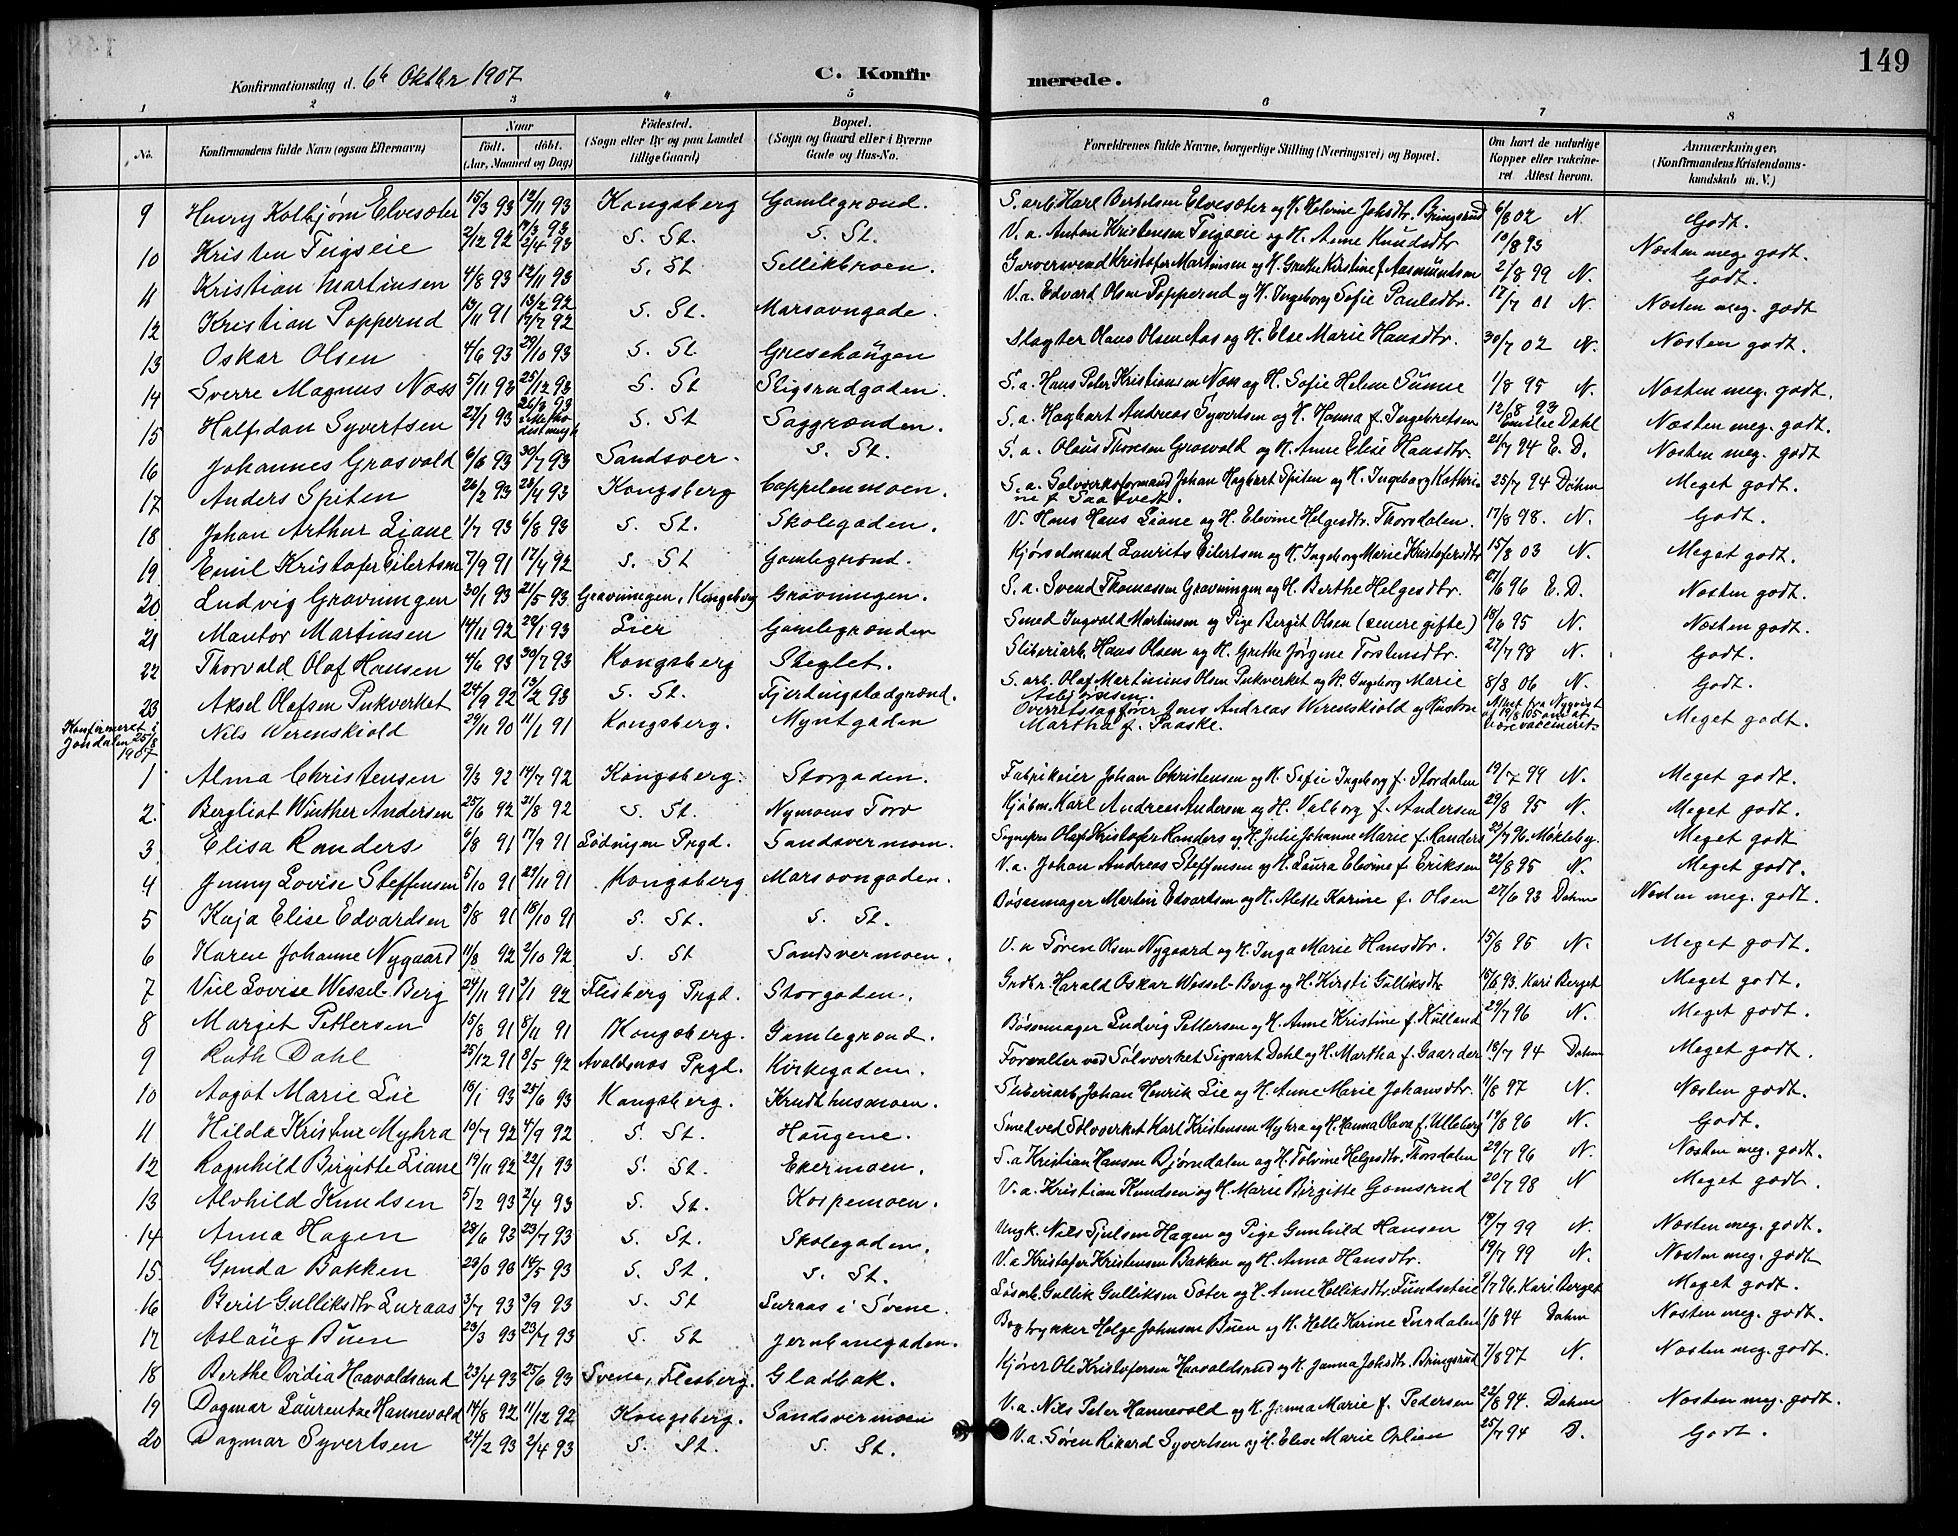 149
Konfirmationsdag d. 6te Oktbr. 1907
C. Konfirmerede.
1 2 3 4 5 6 7 8
No.
Konfirmandens fulde Navn (ogsaa Efternavn)
Naar
født. døbt.
(Aar, Maaned og Dag)
Fødested.
(Sogn eller By og paa Landet
tillige Gaard)
Bopæl.
(Sogn og Gaard eller i Byerne
Gade og Hus-No.
Forældrenes fulde Navne, borgerlige Stilling (Næringsvei) og Bopæl.
Om havt de naturlige
Kopper eller vakcine-
ret Attest herom.
Anmærkninger,
(Konfirmandens Kristendoms-
kundskab m. V.)
9 Henry Kolbjørn Elvesæter 15/3 93 12/11 93 Kongsberg Gamlegrænd. S. arb. Karl Bertelsen Elvesæter og H. Johsdtr. Bringsrud 6/8 02 N. Godt.
10 Kristen Teigseie 2/12 92 2/4 93 S. St. S. St. V. a. Anton Kristensen Teigseie og H. Anne Knudsdtr. 10/8 93 Næsten meg. godt.
11 Kristian Martinsen 4/8 93 12/11 93 S. St Sellikbroen. Garversvend Kristofer Martinsen og H. Grethe Kirstine f. Aasmundsen 2/8 99 N. Godt.
12 Kristian Popperud 13/11 91 13/2 92 17/7 92 S. St. Marsovngade. V. a. Edvart Olsen Popperud og H. Ingeborg Sofie Paulsdtr. 12/7 01 N. Næsten meg. godt
13 Oskar Olsen 4/6 93 29/10 93 S. St Gaasehaugen Slagter Hans Olsen Aas og H. Else Marie Hansdtr. 30/7 02 N. Næsten godt.
14 Sverre Magnus Næss 5/11 93 25/12 93 S. St Stigsrudgaden. S. a. Hans Peter Kristiansen Næss og H. Sofie Helene Sunne 1/8 95 N. Næsten meg. godt.
15 Halfdan Syvertsen 27/1 93 26/3 93 S. St Saggrænden. S. a. Hagbart Andreas Syvertsen og H. Hanna f. Ingebretsen 12/8 93 Emilie Dahl Næsten meg. godt.
16 Johannes Grosvold 6/6 93 30/7 93 Sandsver. S. St. S. a. Olaus Thoresen Grosvold og H. Anne Elise Hansdtr. 25/7 94 E. D. Næsten meg. godt
17 Anders Spiten 26/2 93 23/4 93 Kongsberg Cappelenmoen. S. a. Sølvverksformand Johan Hagbart Spiten og H. Ingeborg Kathri-
ne f. Saatvedt. 25/7 94 Dahm Meget godt.
18 Johan Arthur Liane 1/7 93 6/8 93 S. St. Skolegaden. V. Hans Hans Liane og H. Elevine Helgesdtr. Thorsdalen. 17/8 98. N. Godt.
19 Emil Kristofer Eilertsen 7/9 91 17/4 92 S. St Gamlegrænd. Kjørselmand Laurits Eilertsen og H. Ingeborg Marie Kristofersdtr 15/8 03 N. Meget godt.
20 Ludvig Gravningen 30/1 93 21/5 93 Gravningen, Kongsberg Gravningen. S. a. Svend Thomassen Gravningen og H. Berthe Helgesdtr. 27/6 96 E. D. Næsten godt.
21 Mantor Martinsen 14/11 92 29/1 93 Lier Gamlegrænden Smed Ingvald Martinsen og Pige Bergit Olsen (senere gifte) 18/6 95 N. Næsten godt.
22 Thorvald Olaf Hansen 4/6 93 30/7 93 Kongsberg Steglet. Sliberiarb. Hans Olsen og H. Grethe Jørgine Torstensdtr. 27/7 98 N. Godt.
23 Aksel Olafsen Pukverket 24/9 92 13/2 93 S. St. Fjerdingstadgrænd. S. arb. Olaf Martinius Olsen Pukverket og H. Ingeborg Marie
Asbjørnsen. 8/8 06 N. Godt.
Konfirmeret i
Jondalen 25/8
1907
Nils Werenskiold 29/11 90 11/1 91 Kongsberg. Myntgaden Overretssagfører Jens Andreas Werenskiold og Hustru
Martha f. Paaske. Attest fra Nyqvist
af 19/8 05 om at
være vaccineret. Meget godt.
1 Alma Christensen 9/3 92 14/7 92 Kongsberg. Storgaden. Fabrikeier Johan Christensen og H. Sofie Ingeborg f. Stordalen 19/7 99 N. Meget godt.
2. Bergliot Winther Andersen 25/6 92 21/8 92 S. St. Nymoens Torv Kjøbm. Karl Andreas Andersen og H. Valborg f. Andersen 29/8 95 N. Meget godt.
3 Elisa Randers 6/8 91 17/9 91 Lødingen Prgd. Sandsvermoen. Sogneprs Olaf Kristofer Randers og H. Julie Johanne Marie f. Randers 23/7 96. Mökleby. Meget godt
4 Jenny Lovise Steffensen 5/10 91 29/11 91 Kongsberg Marsovngaden. V. a. Johan Andreas Steffensen og H. Laura Elevine f. Eriksen 22/8 95 N. Meget godt.
5 Kaja Elise Edvardsen 5/8 91 18/10 91 S. St. S. St. Bøssemager Martin Edvartsen og H. Alette Karine f. Olsen 27/6 93 Dahm Næsten meg. godt.
6 Karen Johanne Nygaard 11/8 92 2/10 92 S. St Sandsvermoen. V. a Søren Olsen Nygaard og H. Inga Marie Hansdtr. 15/8 95 N. Meget godt.
7 Viel Lovise Wessel-Berg 24/11 91 3/1 92 Flesberg Prgd. Storgaden. Grdbr. Harald Oskar Wessel-Berg og H. Kirsti Gulliksdtr 15/6 93. Kari Berget Meget godt.
8 Margit Pettersen 15/8 91 8/11 91 Kongsberg. Gamlegrænd. Bøssemager Ludvig Pettersen og H. Anne Kristine f. Kulland 29/7 96 N. Meget godt.
9 Ruth Dahl 25/12 91 8/5 92 Avaldsnæs Prgd. Kirkegaden. Forvalter ved Sølvverket Sigvart Dahl og H. Martha f. Gaarder 18/7 94 Dahm Meget godt.
10 Aagot Marie Lie 16/1 93 25/6 93 Kongsberg. Krudthusmoen. Sliberiarb. Johan Henrik Lie og H. Anne Marie Johansdtr. 11/8 97 N. Næsten godt.
11 Hilda Kristine Myhra 10/7 92 4/9 92 S. St. Haugene. Smed ved Sölvverket Karl Kristensen Myhra og H. Hanna Olava f. Ulleberg 19/8 96 N. Godt.
12 Ragnhild Birgitte Liane 19/11 92 22/1 93 S. St. Ekermoen. S. a Kristian Hansen Bjørndalen og H. Tolvine Helgesdtr. Thorsdalen 29/7 96 N. Næsten meg. godt.
13 Alvhild Knudsen 5/2 93 2/4 93 S. St. Korpemoen. V. a. Kristian Knudsen og H. Marie Birgitte Gomsrud 20/7 98 N Meget godt.
14 Anna Hagen 28/6 93 23/7 93 S. St. Skolegaden. Ungk. Nils Sjulsen Hagen og Pige Gunhild Hansen 19/7 99 N. Næsten meg. godt.
15. Gunda Bakken 14/5 93 S. St. S. St. V. a Kristofer Kristensen Bakken og H. Anna Hansdtr. 19/7 99 N. Næsten meg. godt
16 Berit Gulliksdtr Luraas 3/7 93 3/9 93 S. St Luraas i Svene. Løsarb. Gullik Gulliksen Sæter og H. Anne Helliksdtr. Tundseteie 9/7 96. Kari Berget Meget godt.
17 Aslaug Buen 23/3 93 23/7 93 S. St Jernbanegaden. Bogtrykker Helge Johnsen Buen og H. Helle Karine Lurdalen 1/8 94 Dahm Næsten meg. godt.
18 Berthe Ovidia Haavoldsrud 23/4 93 25/6 93 Svene, Flesberg. Gladbak. Kjører Ole Kristofersen Haavoldsrud og H. Janna Johsdtr. Bringsrud 7/8 97 N. Næsten meg. godt.
19 Dagmar Laurentze Hannevold 14/8 92 11/12 92 Kongsberg. Sandsvermoen V. a. Nils Peter Hannevold og H. Janna Marie f. Pedersen 22/8 94. Dahm Næsten meg. godt.
20 Dagmar Syvertsen 24/2 93 2/4 93 S. St. S. St. V. a. Søren Rikard Syvertsen og H. Elise Marie Oplien 25/7 94 D. Godt.